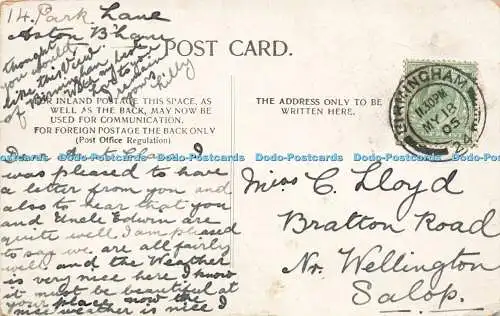 14. Park Lane
Aston B'ham
thought
you would
like this View
of Birmingham
Lilly
POST CARD.
FOR INLAND POSTAGE THIS SPACE, AS
WELL AS THE BACK, MAY NOW BE
USED FOR COMMUNICATION.
FOR FOREIGN POSTAGE THE BACK ONLY
(Post Office Regulation)
Dear Aunt Clara I
was pleased to have
a letter from you and
also to hear that you
and Uncle Edwin are
quite well. I am pleased
to say we are all fairly
well. and the Weather
is very nice here I know
it must be beautiful at
your place now the
nice weather is nice I
THE ADDRESS ONLY TO BE
WRITTEN HERE.
BIRMINGHAM
11.30PM
MY 18
05
24
Miss C. Lloyd
Bratton Road
Nr. Wellington
Salop.
Dodo-Postcards Dodo-Postcards Dodo-Postcards Dodo-Postcards Dodo-Postcards Dodo-Postcards